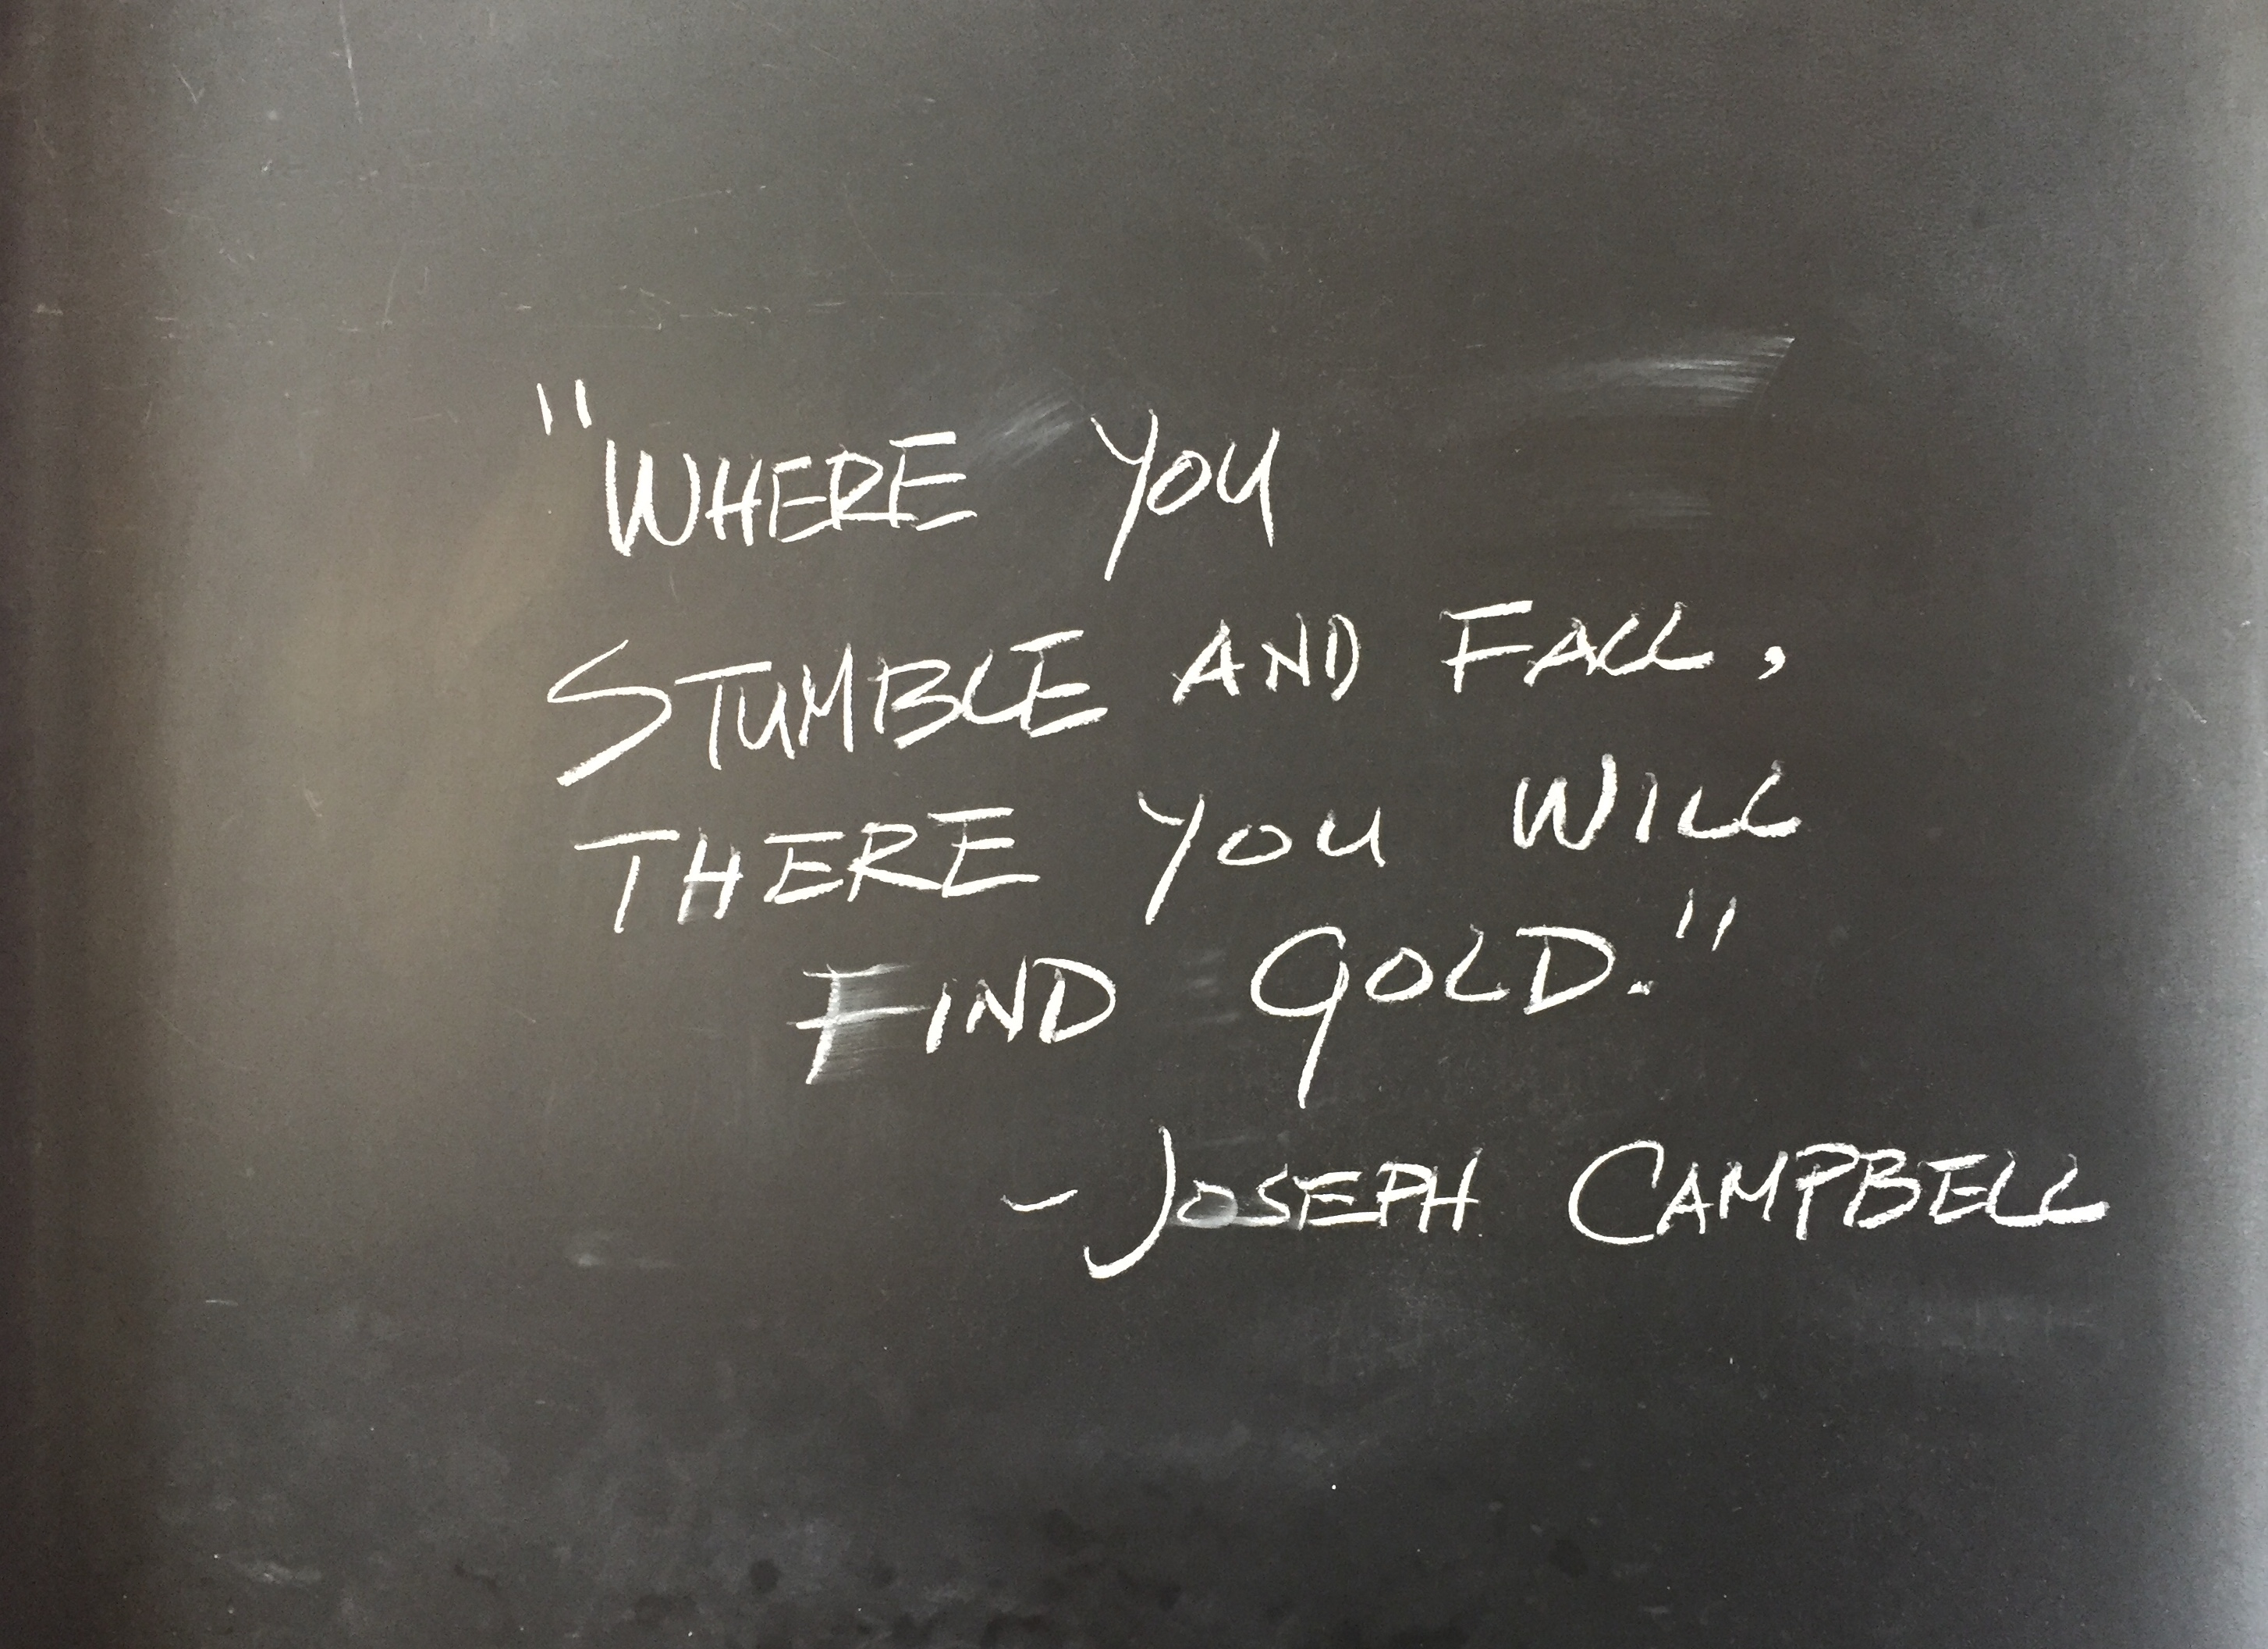 "WHERE YOU
STUMBLE AND FALL,
THERE YOU WILL
FIND GOLD."
- JOSEPH CAMPBELL